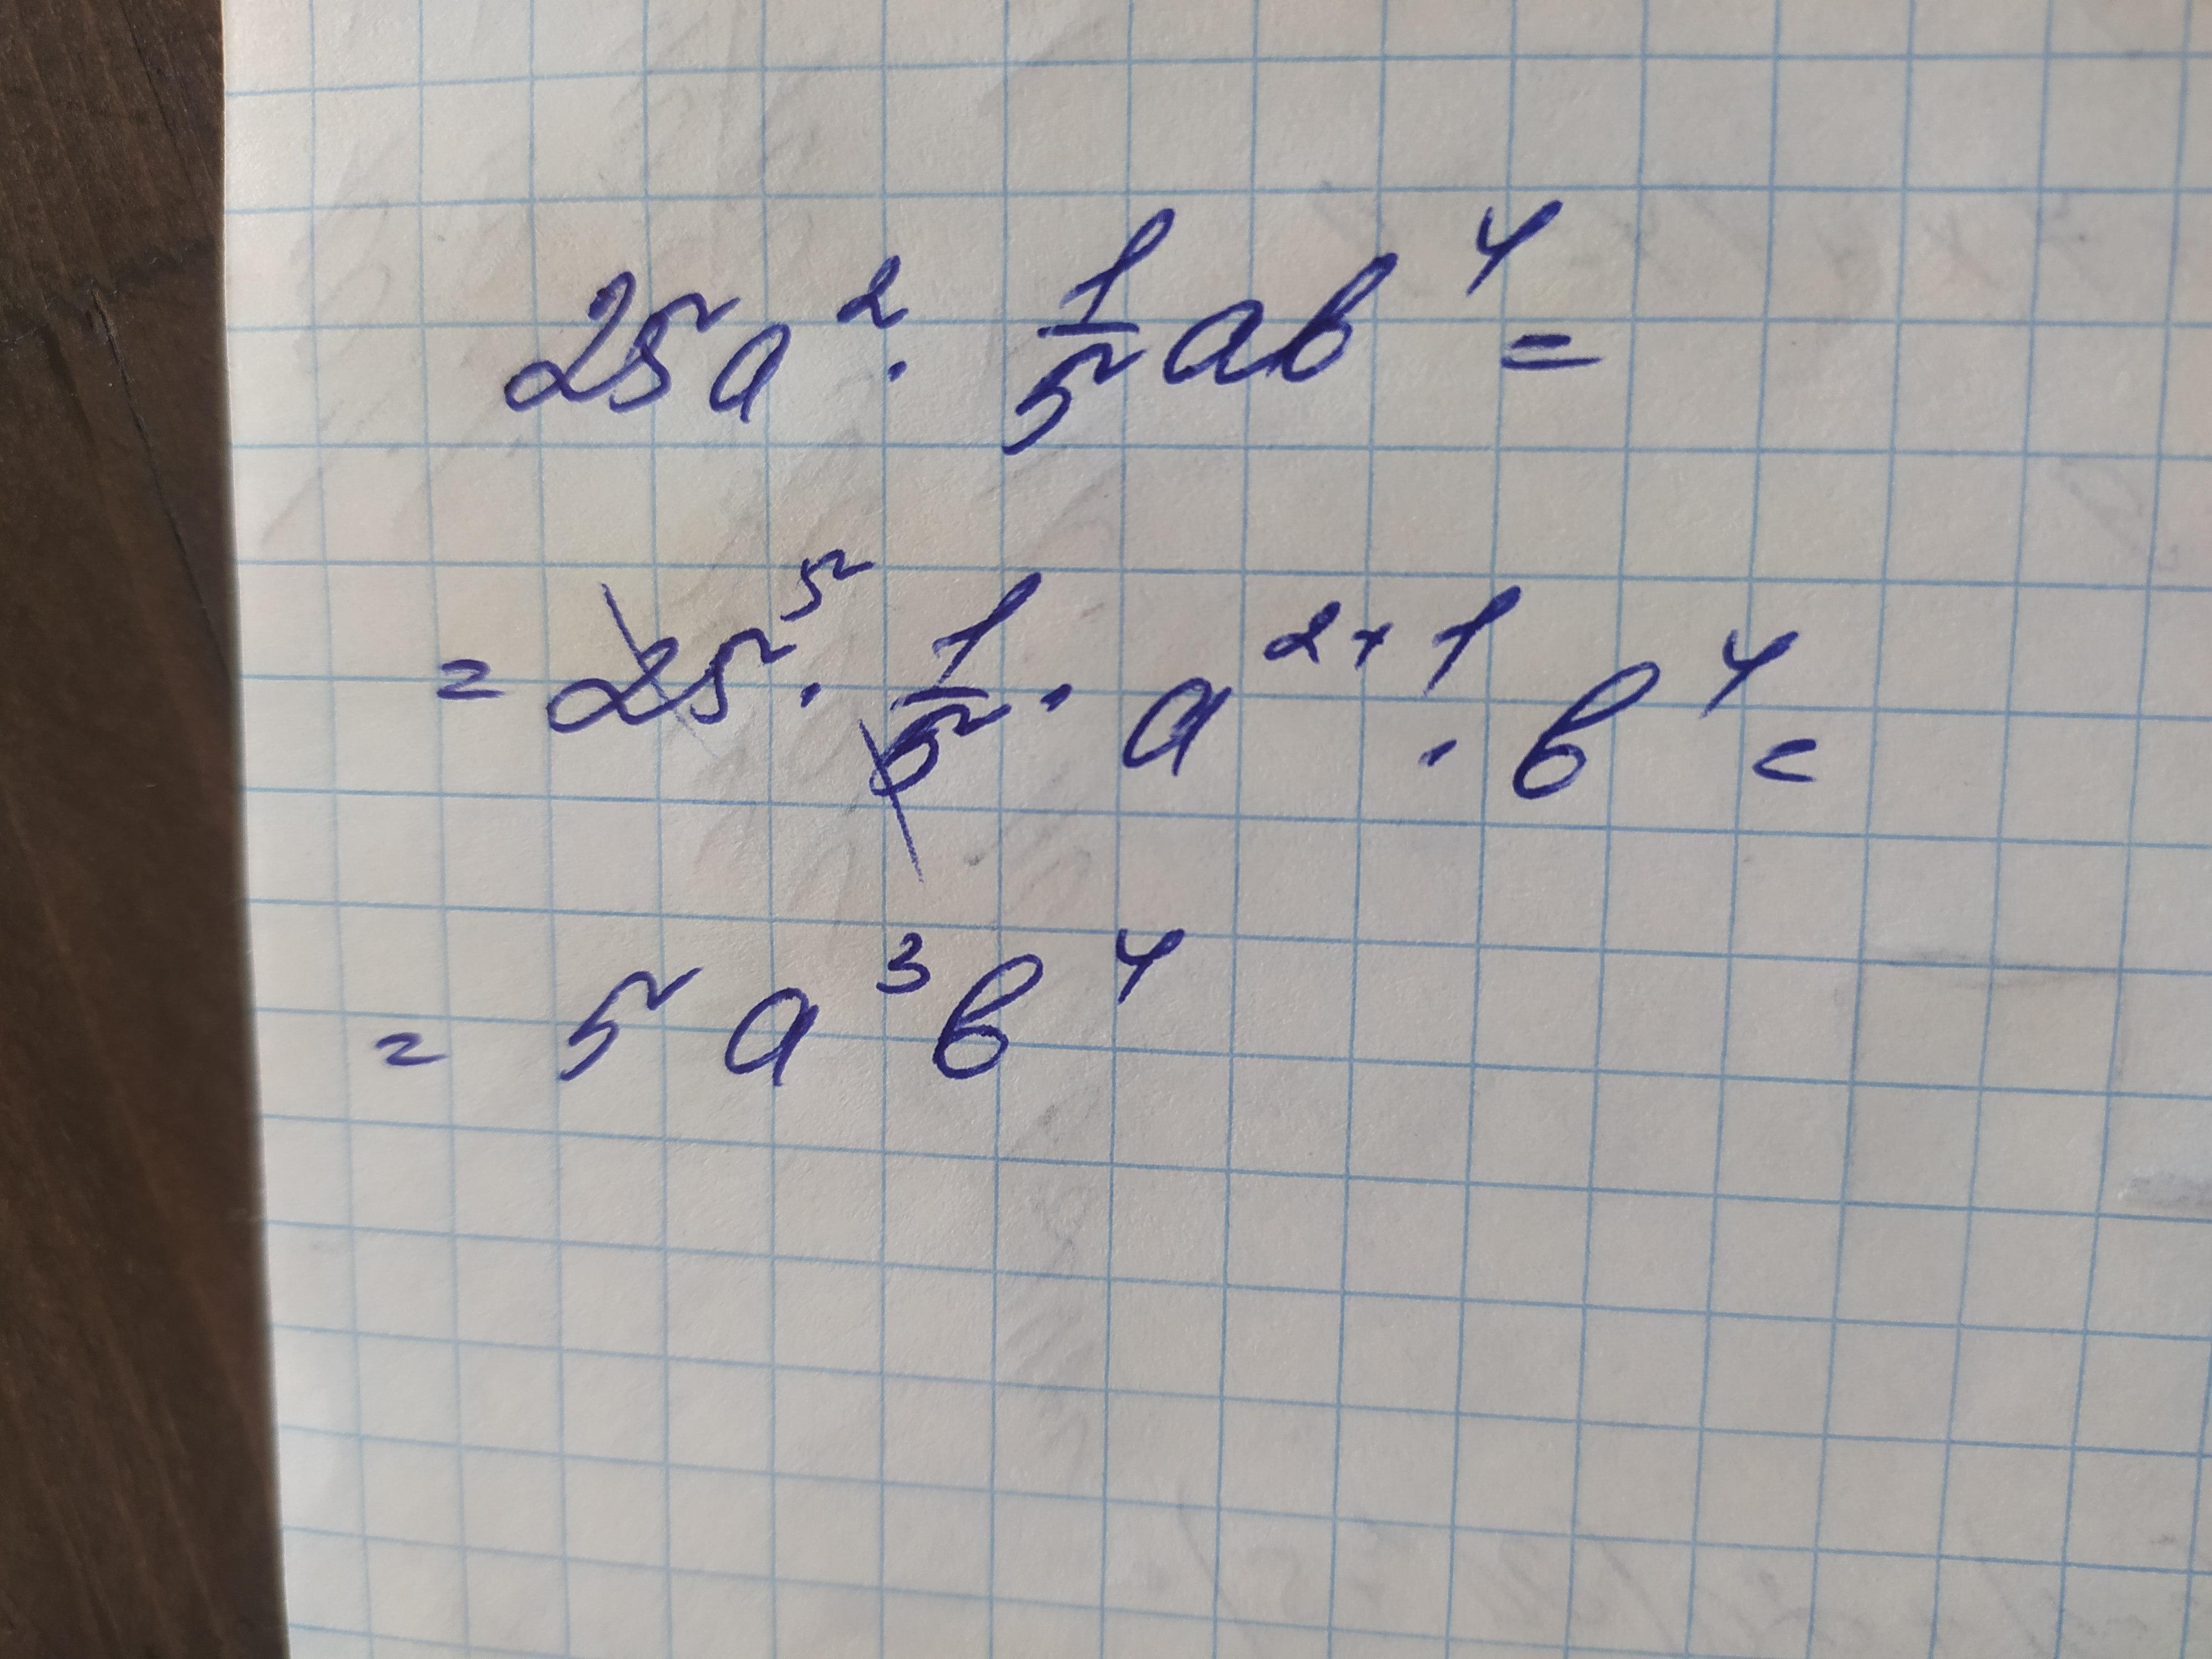 25a² · 1/5 ab⁴ =
= 25⁵ · 1/5 · a²⁺¹ · b⁴ =
= 5a³b⁴